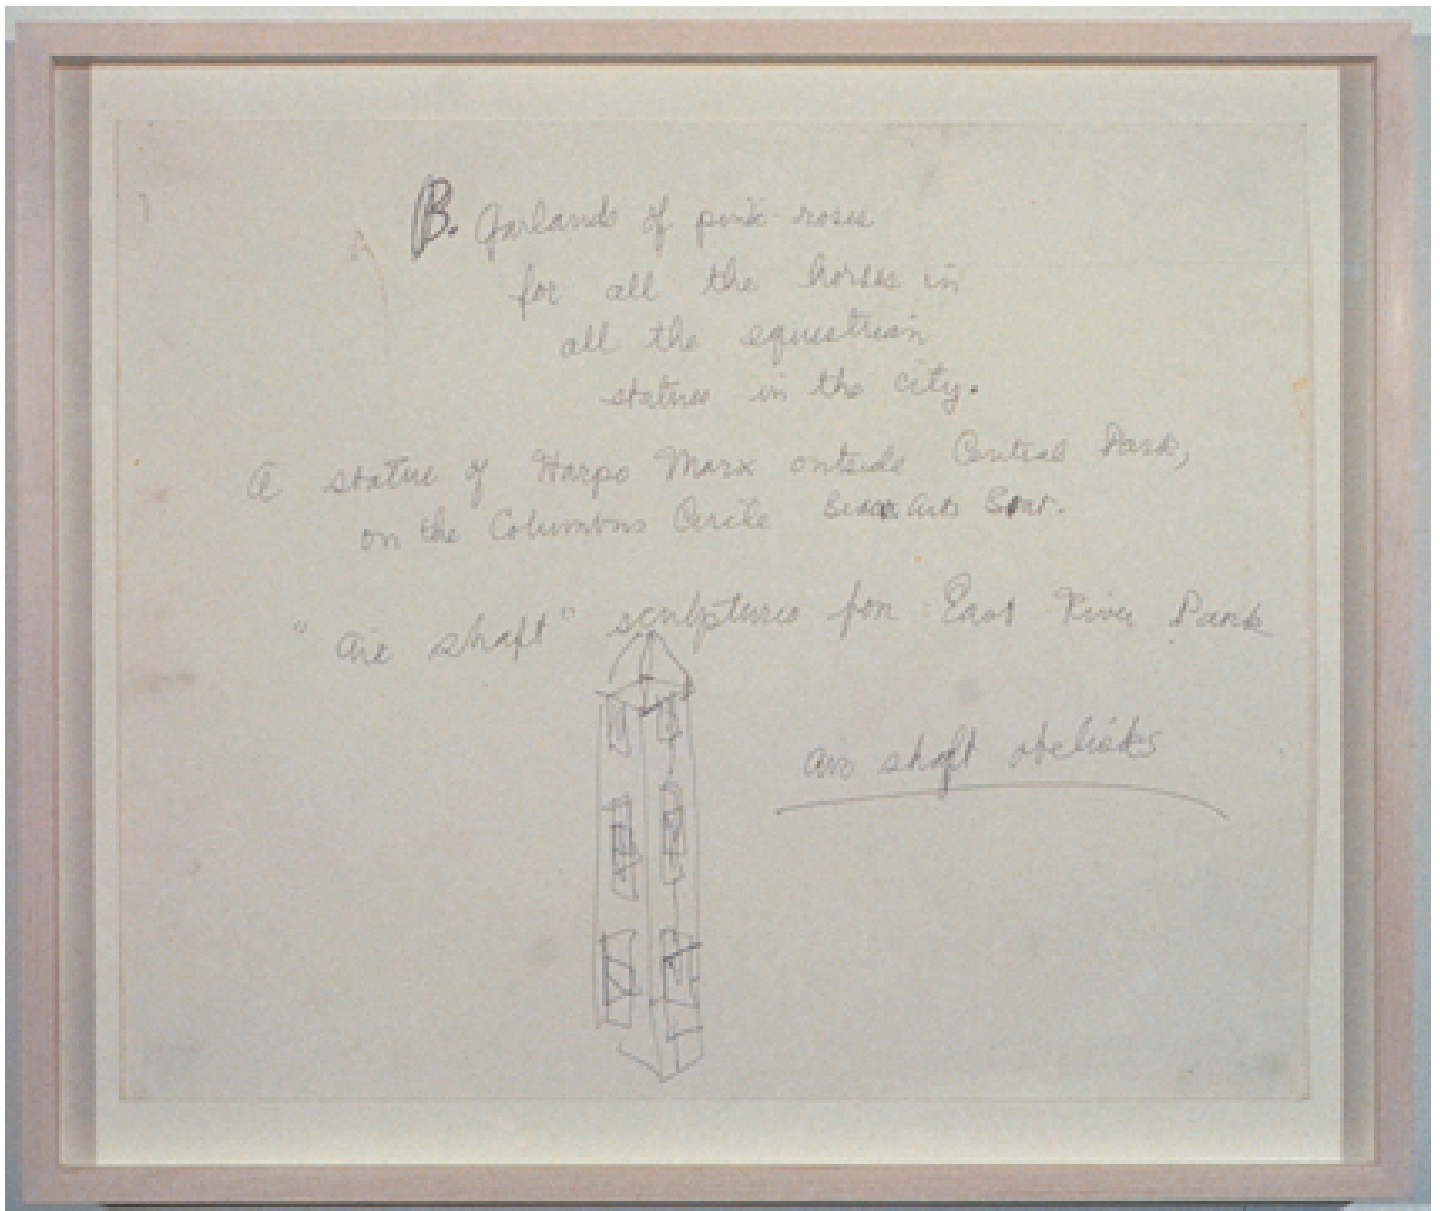 A
B. Garlands of pink roses
for all the horses in
all the equestrian
statues in the city.
A statue of Harpo Marx outside Central Park,
on the Columbus Circle Arts
"air shaft" sculptures for East River Park
air shaft obelisks